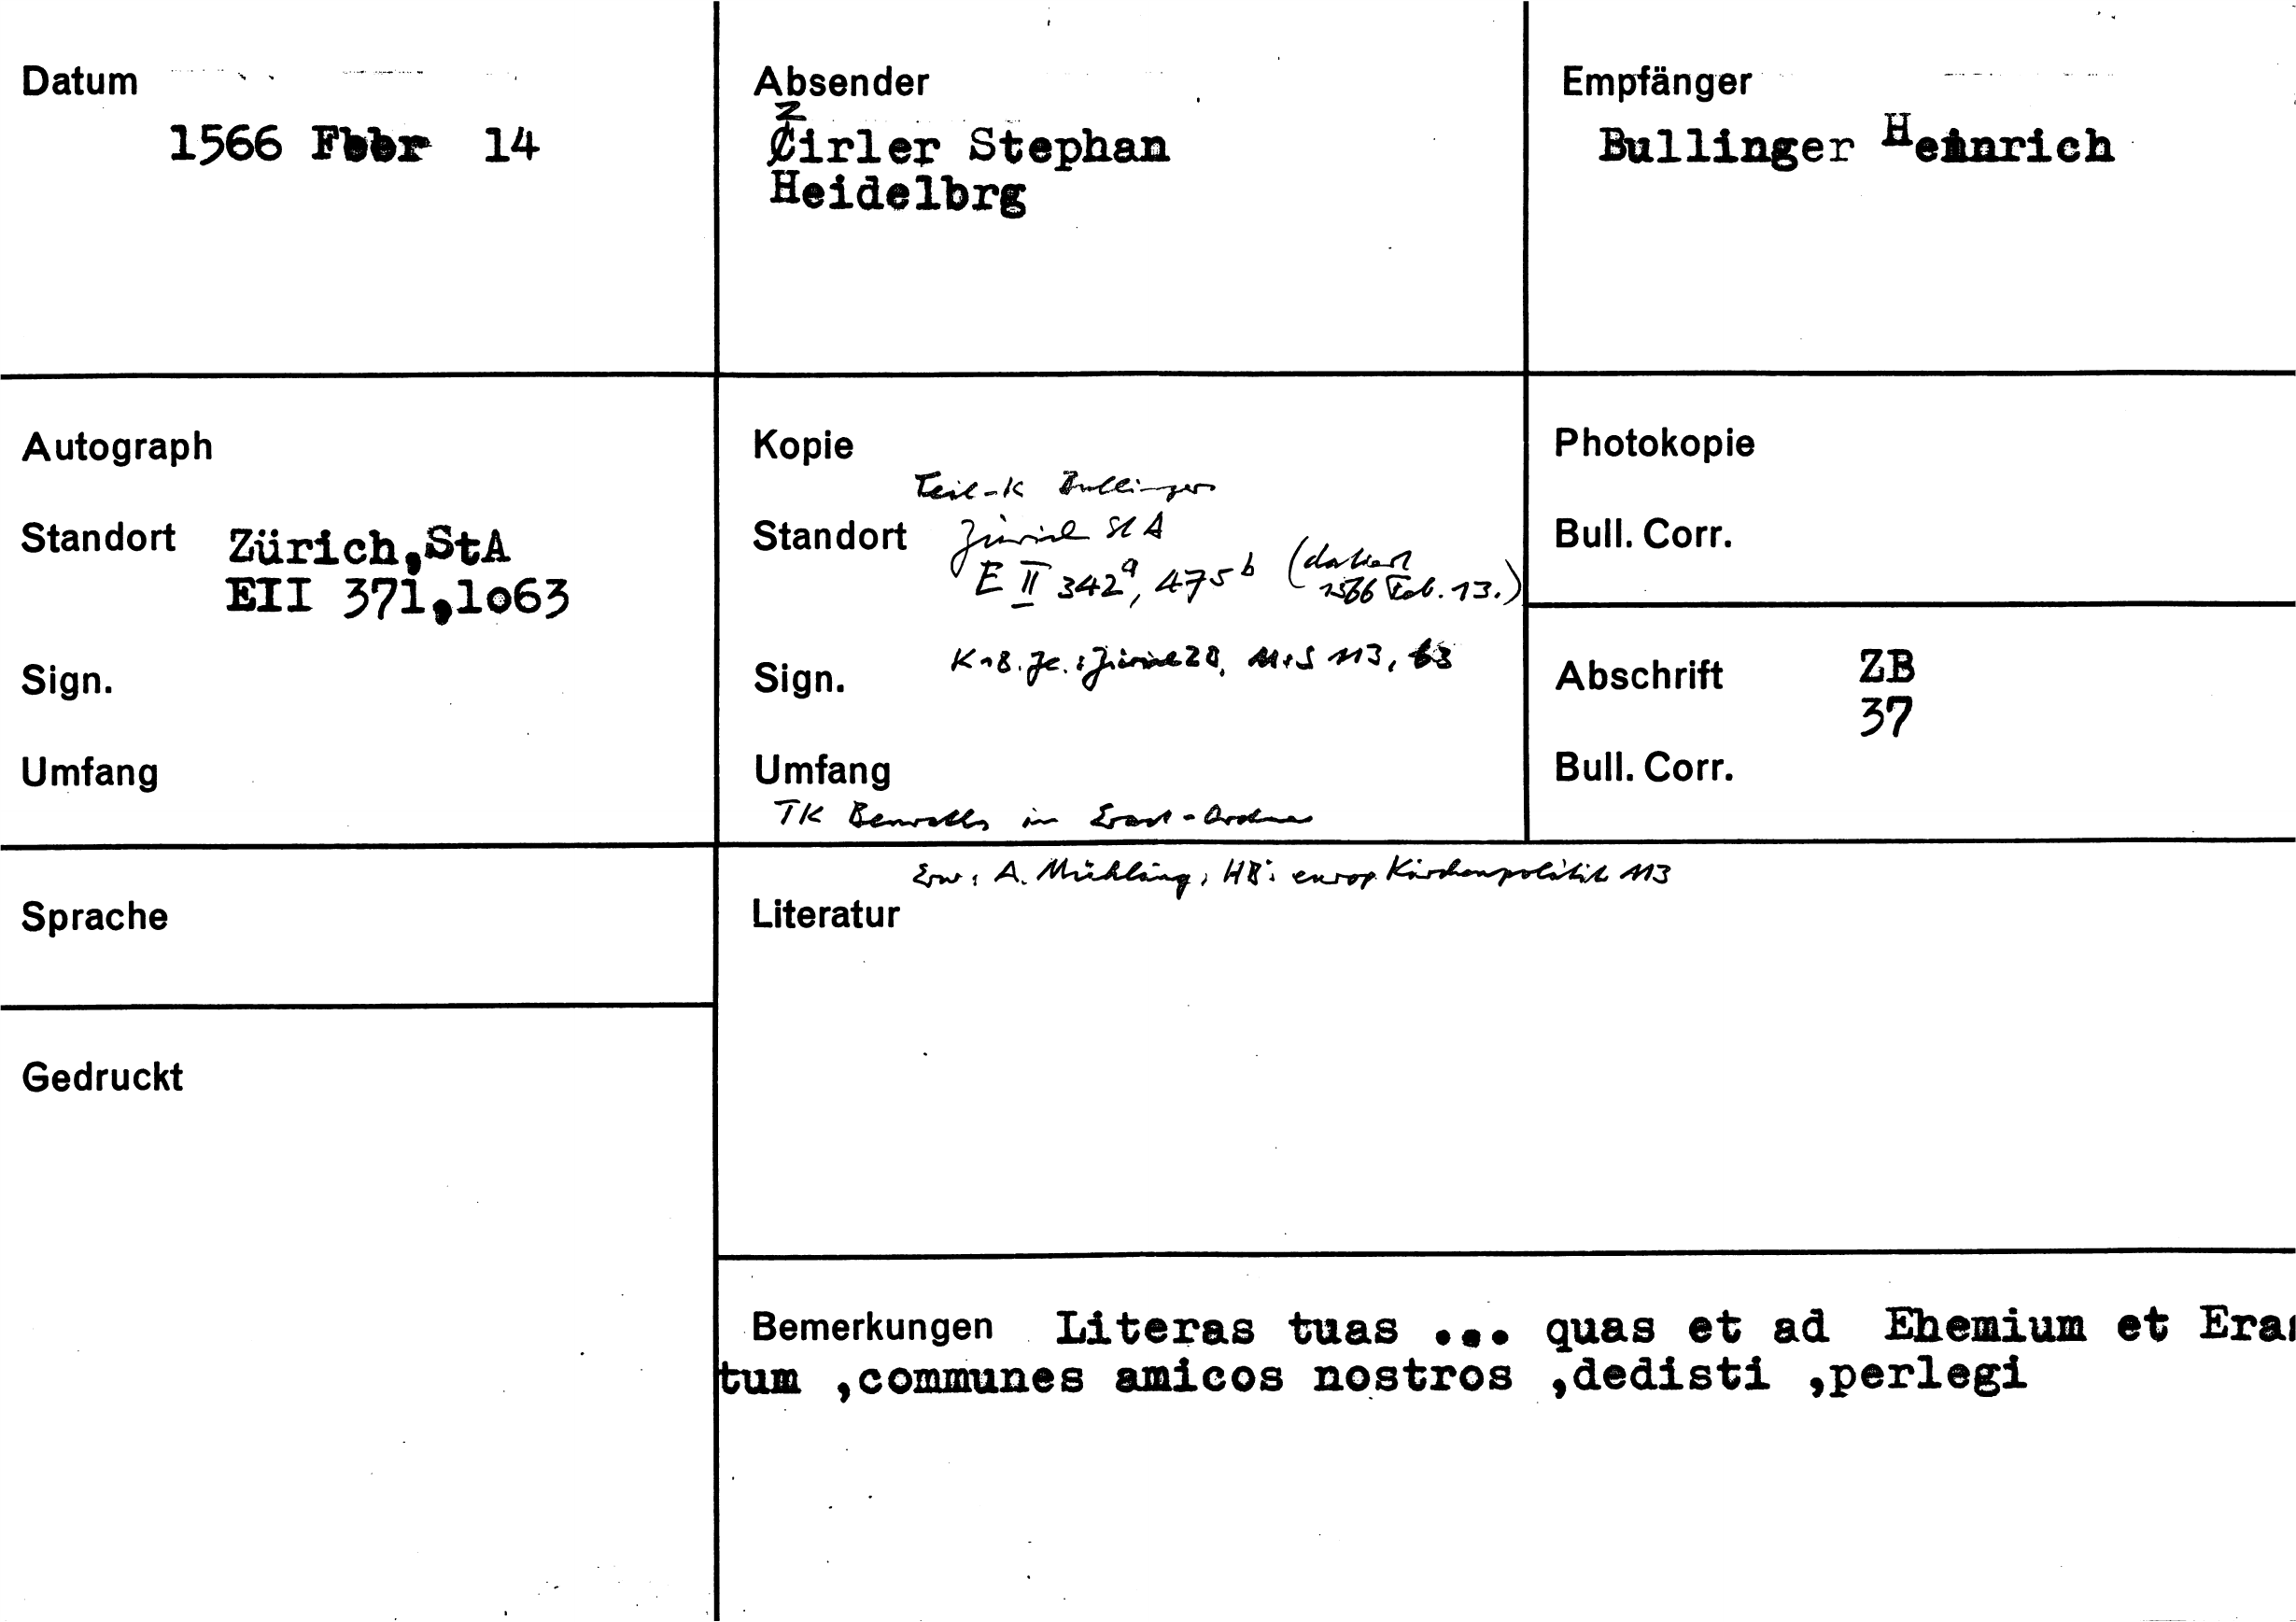 Datum
1566 Febr 14
Absender
Z
Cirler Stephan
Heidelbrg
Empfänger
Bullinger Heinrich
Autograph
Standort Zürich,StA
EII 371,1o63
Sign.
Umfang
Kopie
Teil-K Bullingers
Standort Zürich StA
E II 342a, 475b (datiert
1566 Feb. 13.)
Sign. K 18. Jh.: Zürich ZB, Ms S 113, 63
Umfang
TK in Erast-Ordner
Photokopie
Bull. Corr.
Abschrift ZB
37
Bull. Corr.
Sprache
Erw: A. Mühling, HB's europ. Kirchenpolitik 113
Literatur
Gedruckt
Bemerkungen Literas tuas ... quas et ad Ehemium et Eras
tum ,communes amicos nostros ,dedisti ,perlegi